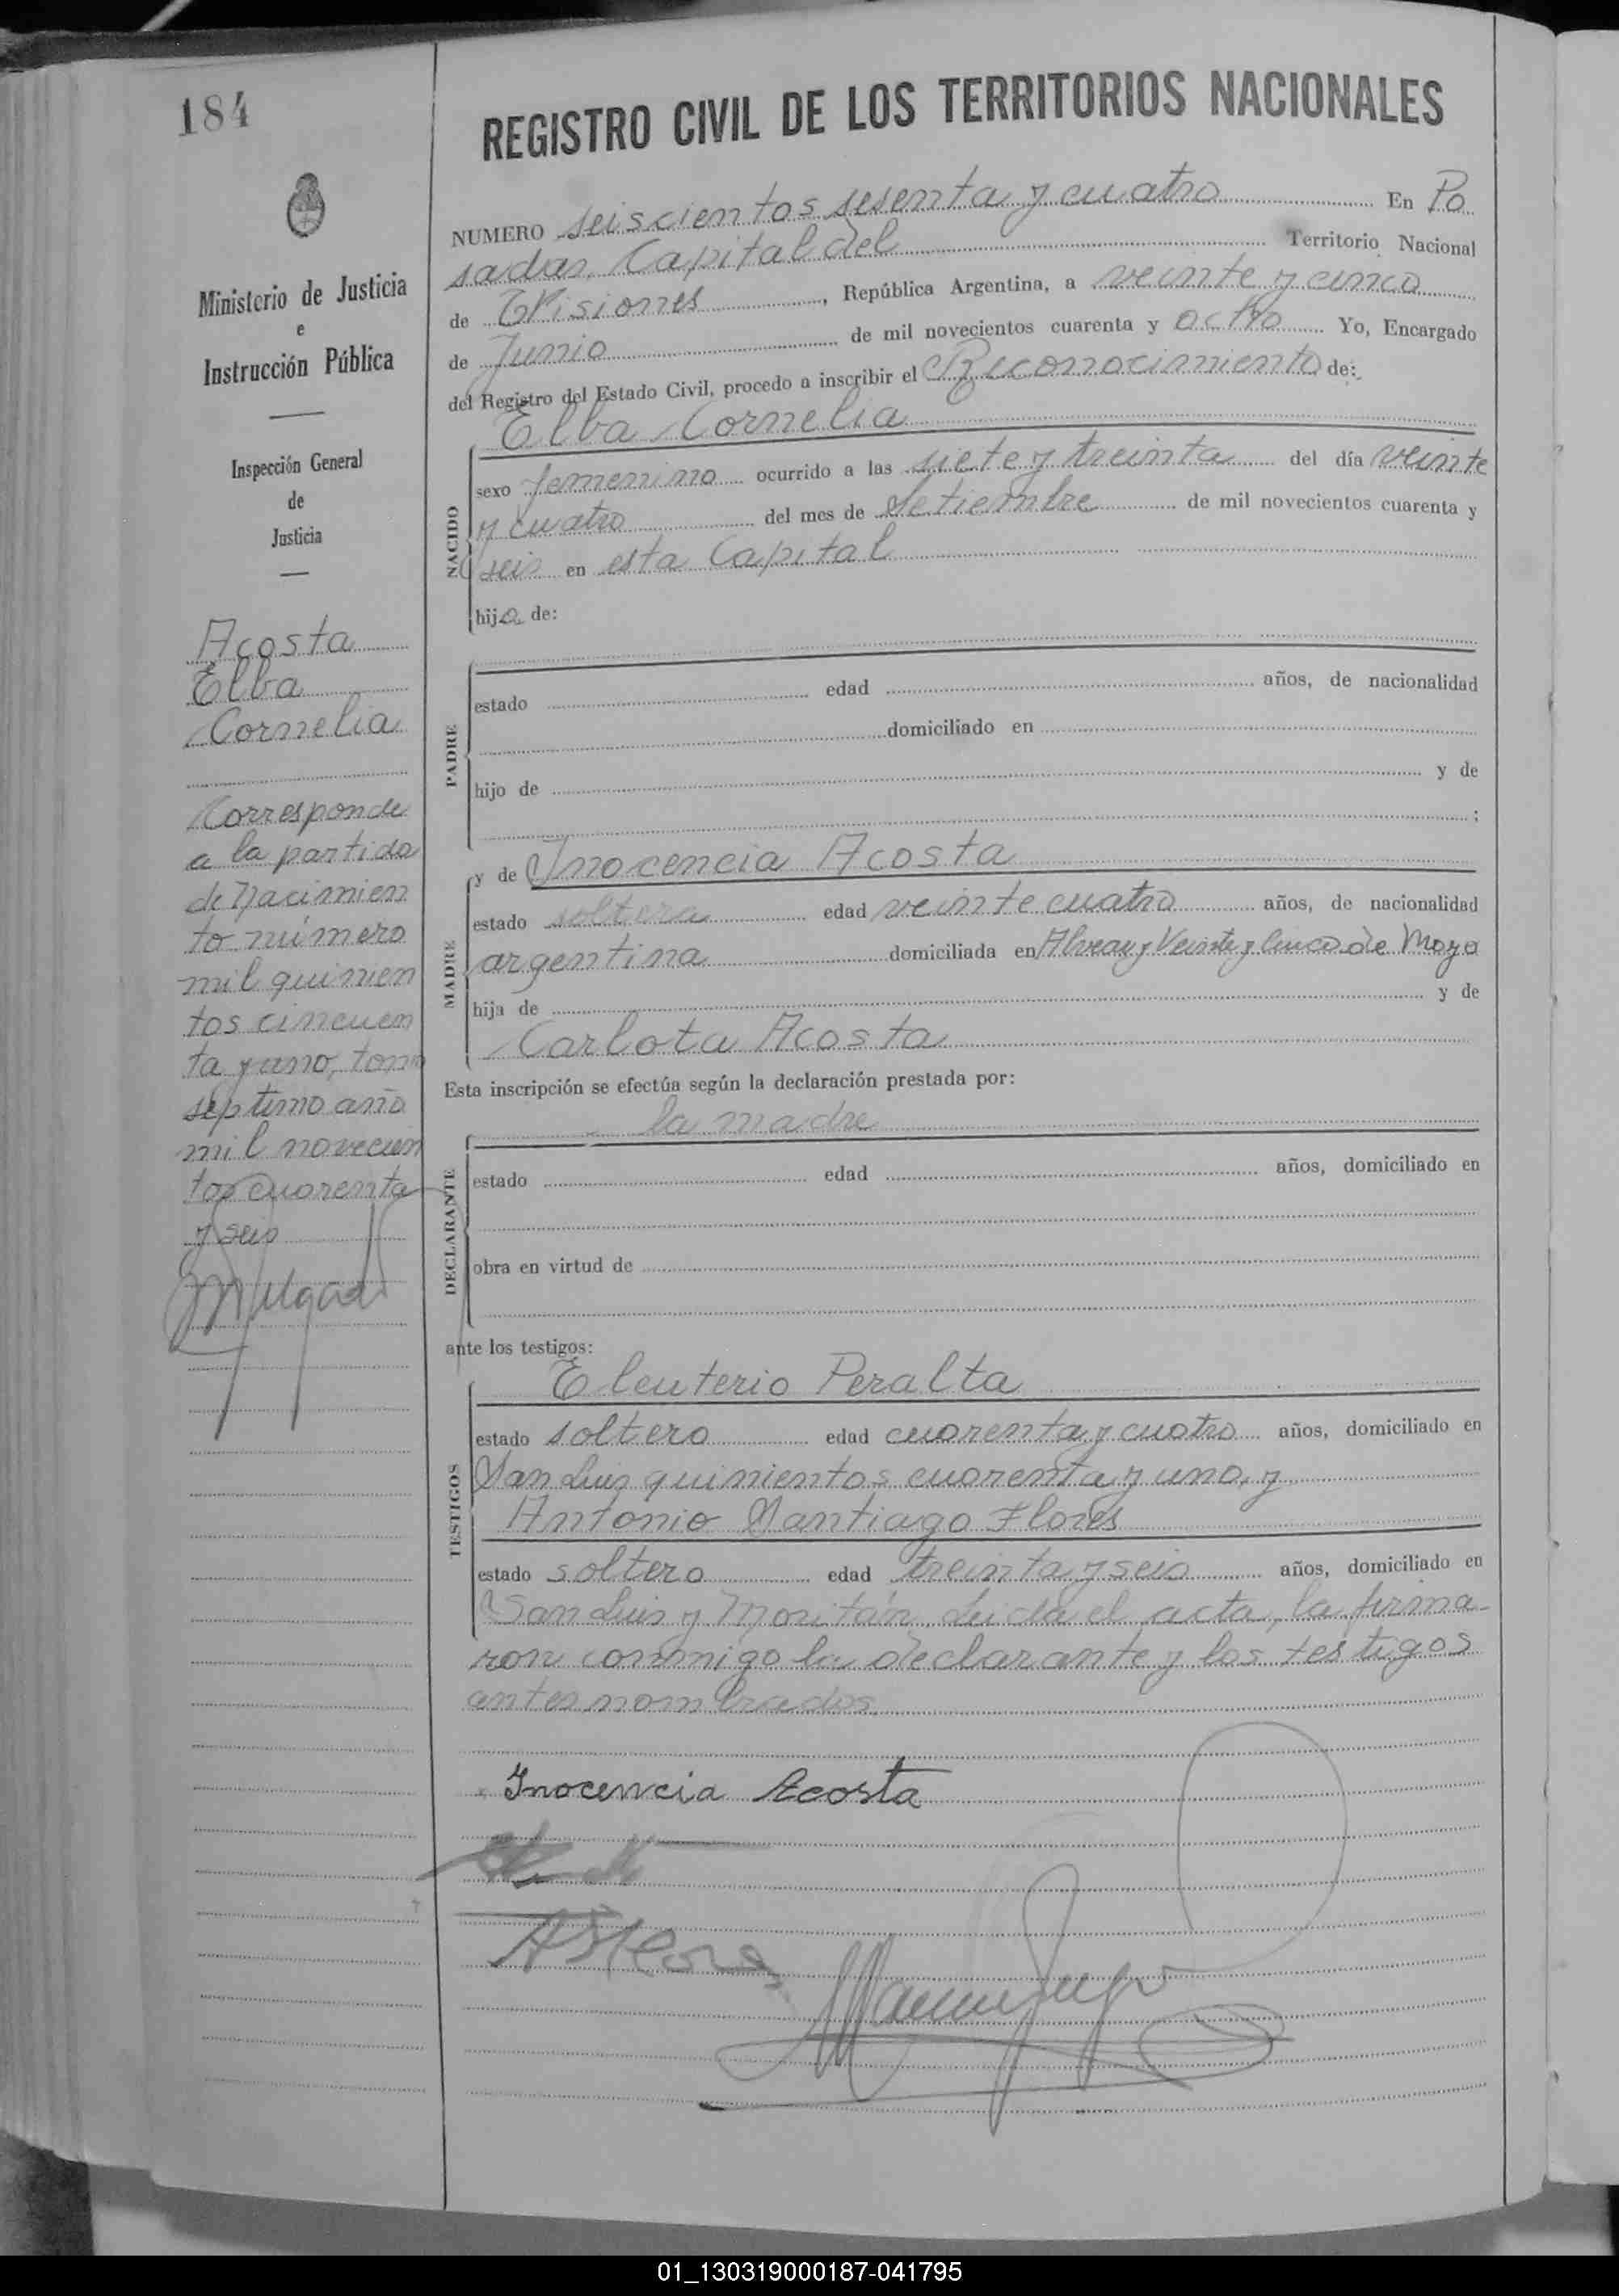 184
REGISTRO CIVIL DE LOS TERRITORIOS NACIONALES
Ministerio de Justicia
e
Instrucción Pública
Inspección General
de
Justicia
Acosta
Elba
Cornelia
Corresponde
a la partida
de Nacimien
to número
mil quinien
tos cincuen
ta y uno, tomo
septimo año
mil novecien
tos cuarenta
y seis
NUMERO seiscientos sesenta y cuatro En Po
sadas, Capital del Territorio Nacional
de Misiones, República Argentina, a veinte y cinco
de Junio de mil novecientos cuarenta y ocho Yo, Encargado
del Registro del Estado Civil, procedo a inscribir el Reconocimiento de:
Elba Cornelia
NACIDO
sexo femenino ocurrido a las siete y treinta del día veinte
y cuatro del mes de Setiembre de mil novecientos cuarenta y
seis en esta Capital
hija de:
PADRE
estado edad años, de nacionalidad
domiciliado en
hijo de y de
;
y de Inocencia Acosta
MADRE
estado soltera edad veinte cuatro años, de nacionalidad
argentina domiciliada en Alvear y Veinte y Cinco de Mayo
hija de y de
Carlota Acosta
Esta inscripción se efectúa según la declaración prestada por:
la madre
DECLARANTE
estado edad años, domiciliado en
obra en virtud de
ante los testigos:
Eleuterio Peralta
TESTIGOS
estado soltero edad cuarenta y cuatro años, domiciliado en
San Luis quinientos cuarenta y uno, y
Antonio Santiago Flores
estado soltero edad treinta y seis años, domiciliado en
San Luis y Moritán. Leida el acta, la firma-
ron conmigo la declarante y los testigos
antes nombrados.
Inocencia Acosta
ASFlores
01_130319000187-041795